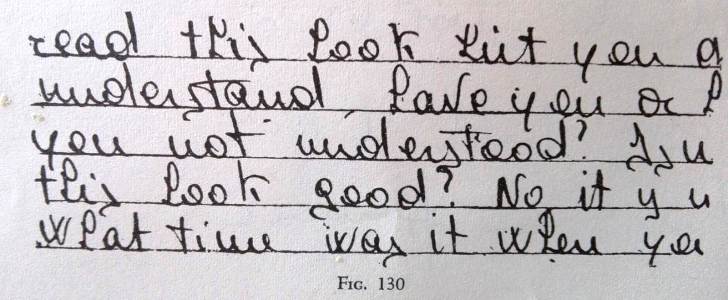 read this book but you a
understand have you or h
you not understood? Isn
this book good? No it is n
what time was it when you
FIG. 130